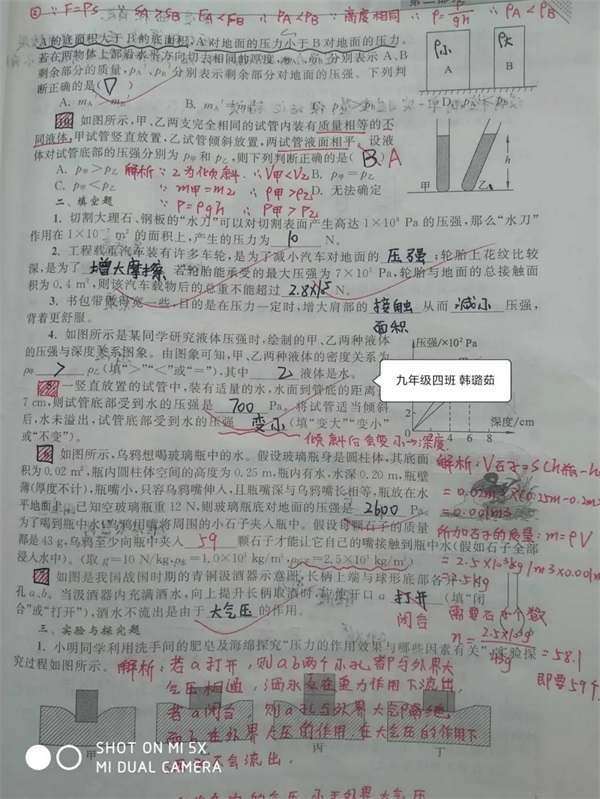 ② ∵ F=PS ∵ SA>SB FA<FB ∴ PA<PB ∵ 高度相同 ∴ P=ρgh ∴ ρA<ρB
A 的底面积大于 B 的底面积, A 对地面的压力小于 B 对地面的压力。
若在两物体上部沿水平方向切去相同的厚度
分别表示 A、B
剩余部分的质量,
分别表示剩余部分对地面的压强。下列判
断正确的是( D )
A B
如图所示,甲、乙两支完全相同的试管内装有质量相等的不
同液体,甲试管竖直放置,乙试管倾斜放置,两试管液面相平。设液
体对试管底部的压强分别为 p甲 和 p乙,则下列判断正确的是( B ) A
A. p甲>p乙 解析: 乙为倾斜 ∴ V甲<V乙 B. p甲=p乙
C. p甲<p乙 ∵ m甲=m乙 ∴ ρ甲>ρ乙 D. 无法确定
∵ P=ρgh ∴ P甲>P乙
甲 乙 h
二、填空题
1. 切割大理石、钢板的“水刀”可以对切割表面产生高达 1×10⁸ Pa 的压强,那么“水刀”
作用在 1×10⁻⁷ m² 的面积上,产生的压力为 10 N。
2. 工程载重汽车装有许多车轮,是为了减小汽车对地面的 压强 ;轮胎上花纹比较
深,是为了 增大摩擦 若轮胎能承受的最大压强为 7×10⁵ Pa,轮胎与地面的总接触面
积为 0.4 m²,则该汽车载物后的总重不能超过 2.8×10⁵ N。
3. 书包带做得宽一些,目的是在压力一定时,增大肩部的 接触面积 从而 减小 压强,
背着更舒服。
4. 如图所示是某同学研究液体压强时,绘制的甲、乙两种液体
的压强与深度关系图象。由图象可知,甲、乙两种液体的密度关系为
ρ甲 > ρ乙(填“>”“<”或“=”),其中 乙 液体是水。
压强/×10² Pa
深度/cm
4 6 8
九年级四班 韩璐茹
一竖直放置的试管中,装有适量的水,水面到管底的距离
7 cm,则试管底部受到水的压强是 700 Pa。将试管适当倾斜
后,水未溢出,试管底部受到水的压强 变小 (填“变大”“变小”
或“不变”)。 倾斜后会变小→深度
如图所示,乌鸦想喝玻璃瓶中的水。假设玻璃瓶身是圆柱体,其底面
积为 0.02 m²,瓶内圆柱体空间的高度为 0.25 m,瓶内有水,水深 0.20 m,瓶壁
薄(厚度不计),瓶嘴小,只容乌鸦嘴伸入,且瓶嘴深与乌鸦嘴长相等,瓶放在水
平地面上,已知空玻璃瓶重 12 N,则玻璃瓶底对地面的压强是 2600 Pa。
为了喝到瓶中水,乌鸦用嘴将周围的小石子夹入瓶中。假设每颗石子的质量
都是 43 g,乌鸦至少向瓶中夹入 59 颗石子才能让它自己的嘴接触到瓶中水(假如石子全部
浸入水中)。(取 g=10 N/kg,ρ水=1.0×10³ kg/m³,ρ石=2.5×10³ kg/m³)
解析: V石子=S(h瓶-h
=0.02m²×(0.25m-0.2m
=0.001m³
所加石子的质量: m=ρV
=2.5×10³kg/m³×0.001m
=2.5kg
需要石子个数
n= =58.1
即要59个
如图是我国战国时期的青铜汲酒器示意图,长柄上端与球形底部各
孔 a、b。当汲酒器内充满酒水,向上提升长柄取酒时,应使开口 a 打开 (填“闭
合”或“打开”),酒水不流出是由于 大气压 的作用。 闭合
三、实验与探究题
1. 小明同学利用洗手间的肥皂及海绵探究“压力的作用效果与哪些因素有关”,实验探
究过程如图所示。 解析: 若a打开, 则ab两个小孔都与外界大
气压相通, 酒水会在重力作用下流出,
若a闭合, 则a孔与外界大气隔绝,
而b在外界大气压的作用, 在大气压的作用下
不会流出.
甲 丙 丁
SHOT ON MI 5X
MI DUAL CAMERA